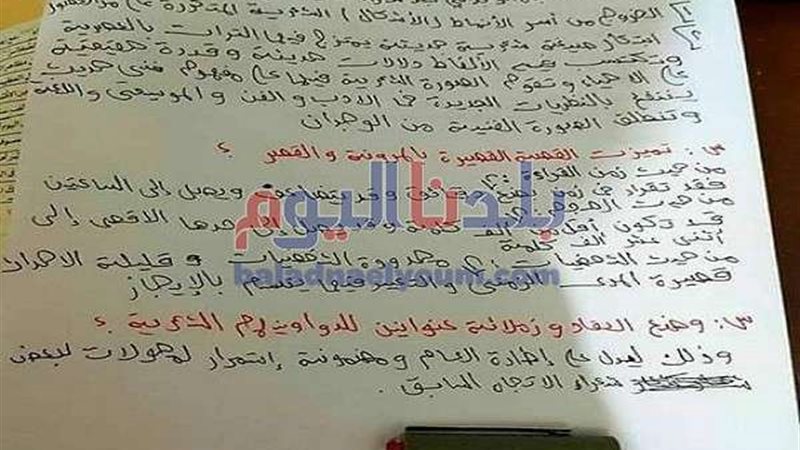 ١ الخروج من أسر الأنماط (الأشكال) الشعرية المتكررة
٢ ابتكار صيغة شعرية حديثة يمتزج فيها التراث بالعصرية
وتكتسب فيهم الألفاظ دلالات حديثة وقدرة حقيقية
على الإحياء وتقوم الصورة الشعرية فيها على مفهوم فنى حديث
ينتفع بالنظريات الجديدة فى الادب والفن والموسيقى واللغة
وتنطلق الصورة الفنية من الوجدان
س: تميزت القصة القصيرة بالمرونة والقصر ؟
من حيث زمن القراءة:
فقد تقراء فى زمن بضع دقائق وقد يتضاعف ويصل إلى الساعتين
من حيث
قد تكون ألف كلمة وقد يصل حدها الاقصى إلى
أثنى عشر ألف كلمة
من حيث الشخصيات: محدودة الشخصيات وقليلة الاحداث
قصيرة المدى الزمنى والتعبير فيها يتسم بالإيجاز
س: وضع العقاد وزملائة عنواين لدواوينهم الشعرية ؟
وذلك ليدل على إطارة العام ومضمونة إستمرار لمحولات لبعض
شعراء الاتجاه السابق.
بلدنا اليوم
baladnaelyoum.com